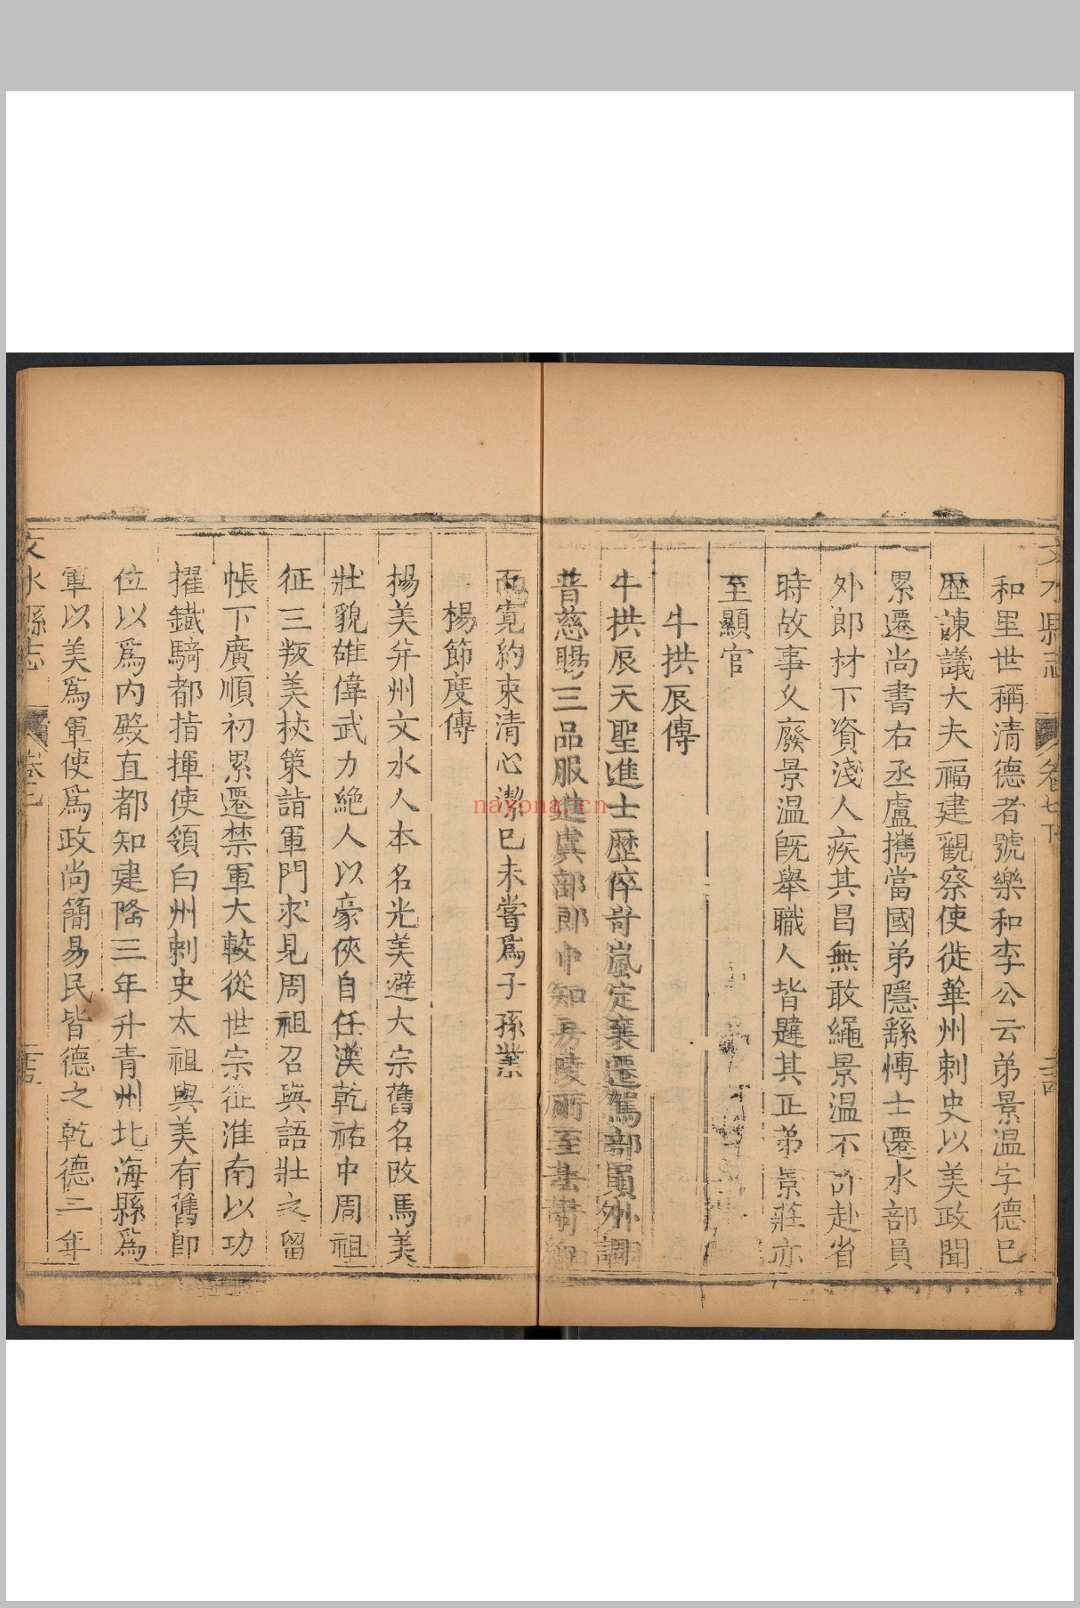 和里世稱清德者號樂和李公云弟景温字德巳
歴諫議大夫福建觀察使徙華州刺史以美政聞
累遷尚書右丞盧擕當國弟隱繇愽士遷水部員
外郎材下資淺人疾其昌無敢繩景温不許赴省
時故事乆廢景温旣舉職人皆韙其正弟景莊亦
至顯官
牛拱辰傳
牛拱辰天聖進士歴倅岢嵐定襄遷駕部員外調
普慈賜三品服進虞部郎中知房陵所至
寛約束清心潔巳未嘗爲子孫業
楊節度傳
楊美并州文水人本名光美避大宗舊名改馬美
壯貌雄偉武力絶人以豪俠自任漢乾祐中周祖
征三叛美杖策詣軍門求見周祖召與語壯之留
帳下廣順初累遷禁軍大較從世宗征淮南以功
擢鐵騎都指揮使領白州刺史太祖與美有舊即
位以爲内殿直都知建隆三年升青州北海縣爲
軍以美爲軍使爲政尚簡易民皆德之乾德三年
文水縣志
文水縣志 卷七下
nayona.cn